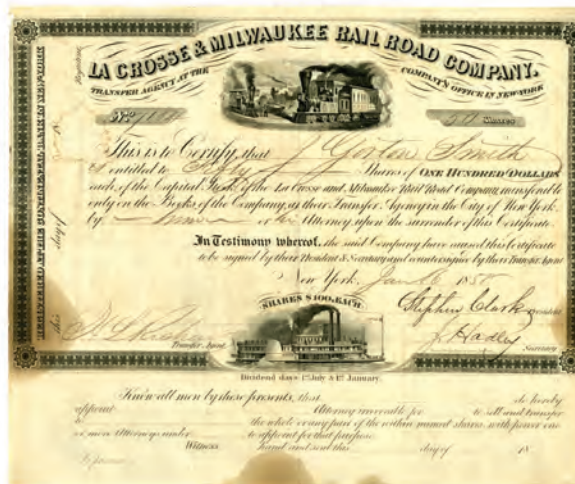 LA CROSSE & MILWAUKEE RAIL ROAD COMPANY.
TRANSFER AGENCY AT THE COMPANY'S OFFICE IN NEW-YORK
No. 50 Shares
This is to Certify, that J Gorton Smith
is entitled to Fifty Shares of ONE HUNDRED DOLLARS
each, of the Capital Stock of the La Crosse and Milwaukee Rail Road Company, transferable
only on the Books of the Company, at their Transfer Agency in the City of New York.
by him or his Attorney, upon the surrender of this Certificate.
In Testimony whereof, the said Company have caused this Certificate
to be signed by their President & Secretary and countersigned by their Transfer Agent
New York, Jan 6 185
SHARES $100, EACH
Stephen Clark President
Transfer Agent
J Hadley Secretary
Dividend days 1st July & 1st January.
Know all men by these presents, that do hereby
appoint Attorney irrevocable for to sell and transfer
to the whole or any part of the within named shares, with power one
or more Attorneys under to appoint for that purpose.
Witness hand and seal this day of 18
In presence
REGISTERED AT THE BANK IN NEW-YORK
this day of
Registrar